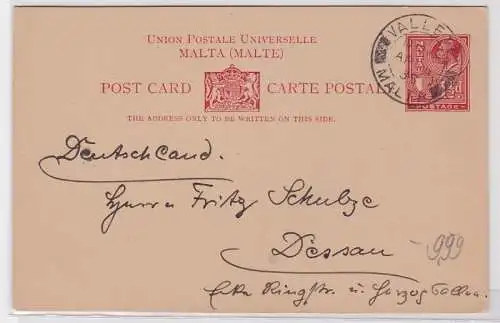 UNION POSTALE UNIVERSELLE
MALTA (MALTE)
POST CARD
CARTE POSTALE
THE ADDRESS ONLY TO BE WRITTEN ON THIS SIDE.
VALLE
MALTA
POSTAGE
Deutschland.
Herrn Fritz Schulze
Dessau
-9,99
Ecke Ringstr. u. Herzogallee.